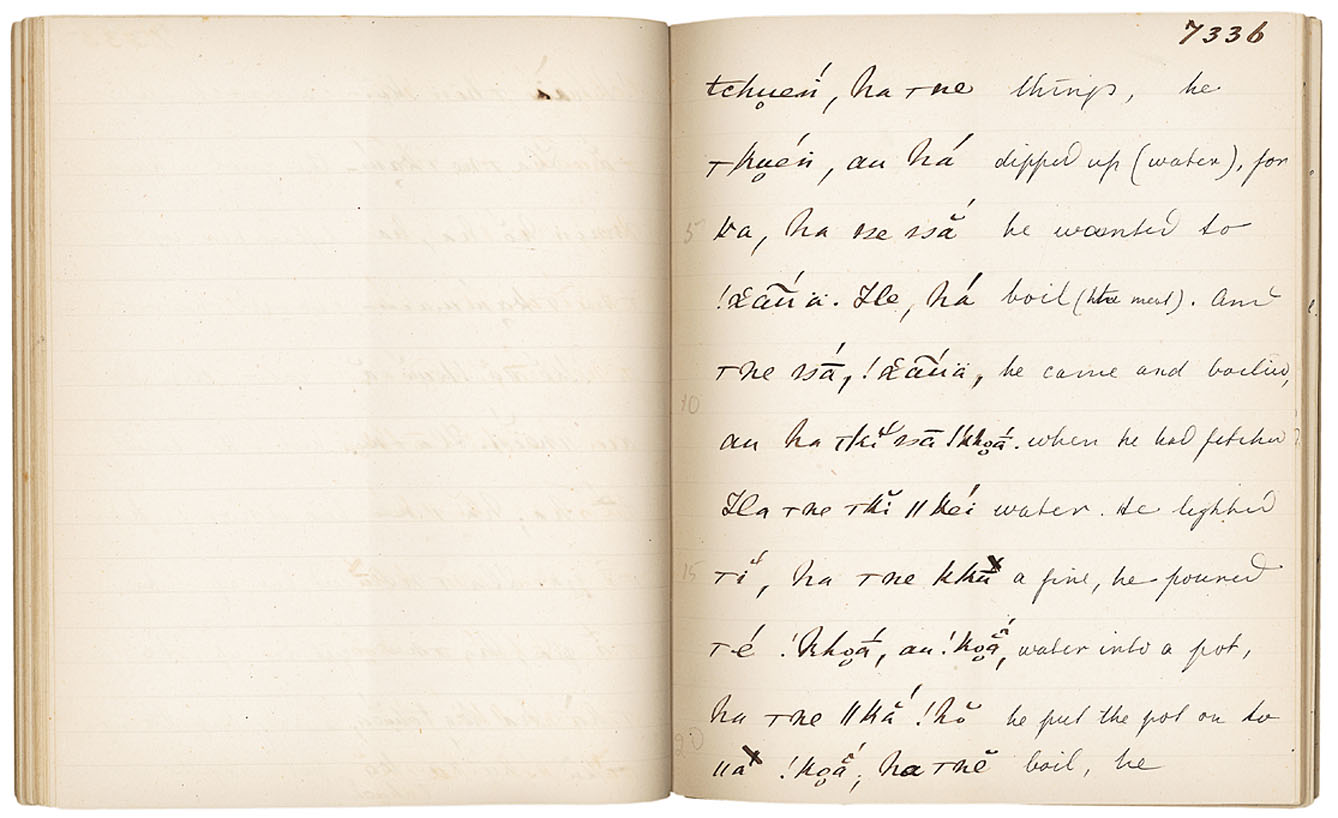 7336
tchu̥eń, ha τne things, he
τku̥éń, au há dipped up (water), for
ka, ha se ssắ he wanted to
!χãúä. He, há boil (the meat). And
τne ssā́, !χãúä, he came and boiled,
au ha τki ssā !khọ̄á. when he had fetched
Ha τne τkĭ ǁkéi water. He lighted
τí, ha τne kkū a fire, he poured
τé !khọá̄, au !kọā̆́, water into a pot,
ha τne ǁkā́ !hŏ he put the pot on to
ǁa !kọā̆́, ha τnĕ boil, he
5
10
15
20